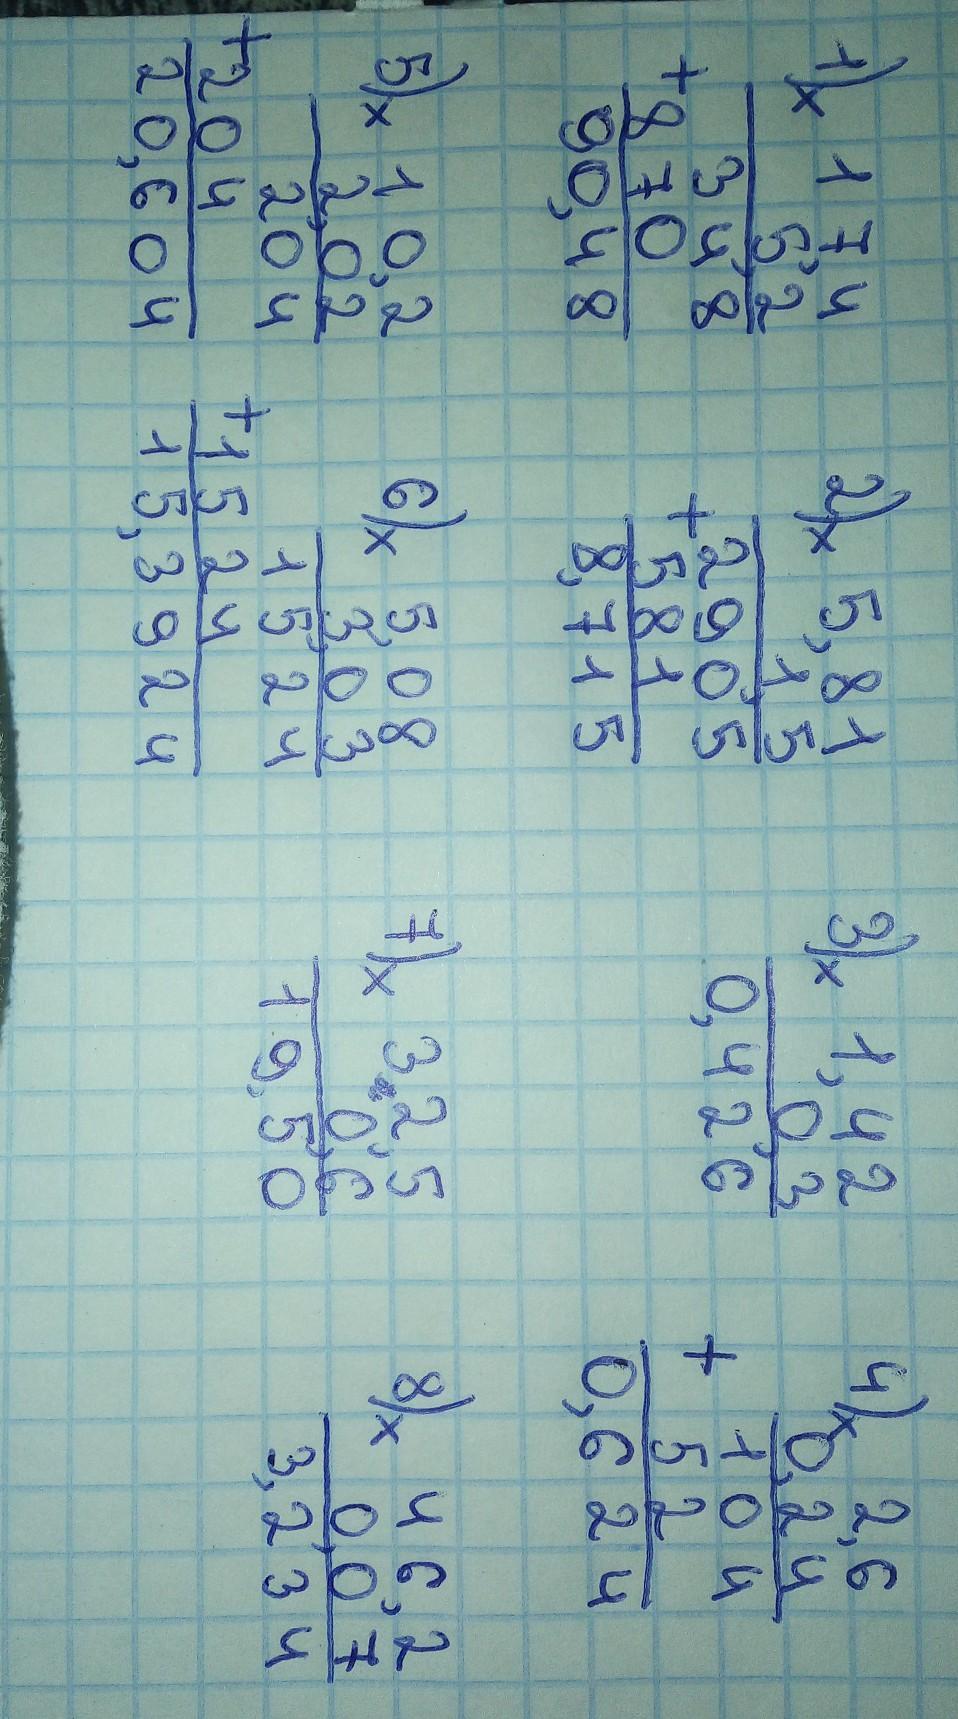 1) x 174
5,2
348
+ 870
90,48
2) x 5,81
1,5
2905
+ 581
8,715
3) x 1,42
0,3
0,426
4) x 2,6
0,24
104
+ 52
0,624
5) x 10,2
2,02
204
+ 204
20,604
6) x 5,08
3,03
1524
+ 1524
15,3924
7) x 325
0,6
19,50
8) x 46,2
0,07
3,234